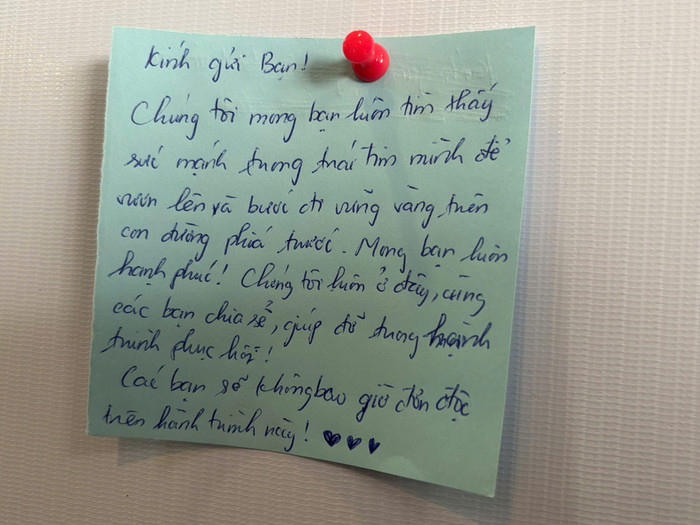 Kính gửi Bạn!
Chúng tôi mong bạn luôn tìm thấy
sức mạnh trong trái tim mình để
vươn lên và bước đi vững vàng trên
con đường phía trước. Mong bạn luôn
hạnh phúc! Chúng tôi luôn ở đây, cùng
các bạn chia sẻ, giúp đỡ trong hành
trình phục hồi!
Các bạn sẽ không bao giờ đơn độc
trên hành trình này! ♥♥♥